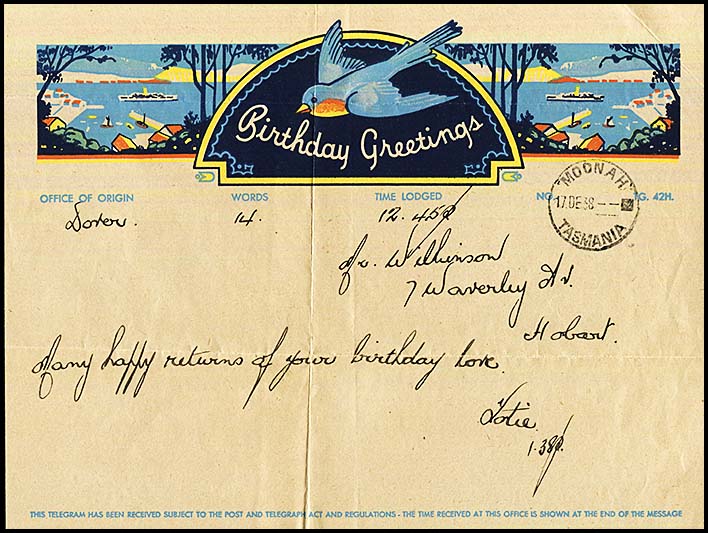 Birthday Greetings
OFFICE OF ORIGIN WORDS TIME LODGED NO. TG. 42H.
Dover. 14. 12.45p
MOONAH
17 DE 38
TASMANIA
Wilkinson
7 Waverley Av.
Hobart.
Many happy returns of your birthday love
Totie
1.38p.
THIS TELEGRAM HAS BEEN RECEIVED SUBJECT TO THE POST AND TELEGRAPH ACT AND REGULATIONS - THE TIME RECEIVED AT THIS OFFICE IS SHOWN AT THE END OF THE MESSAGE